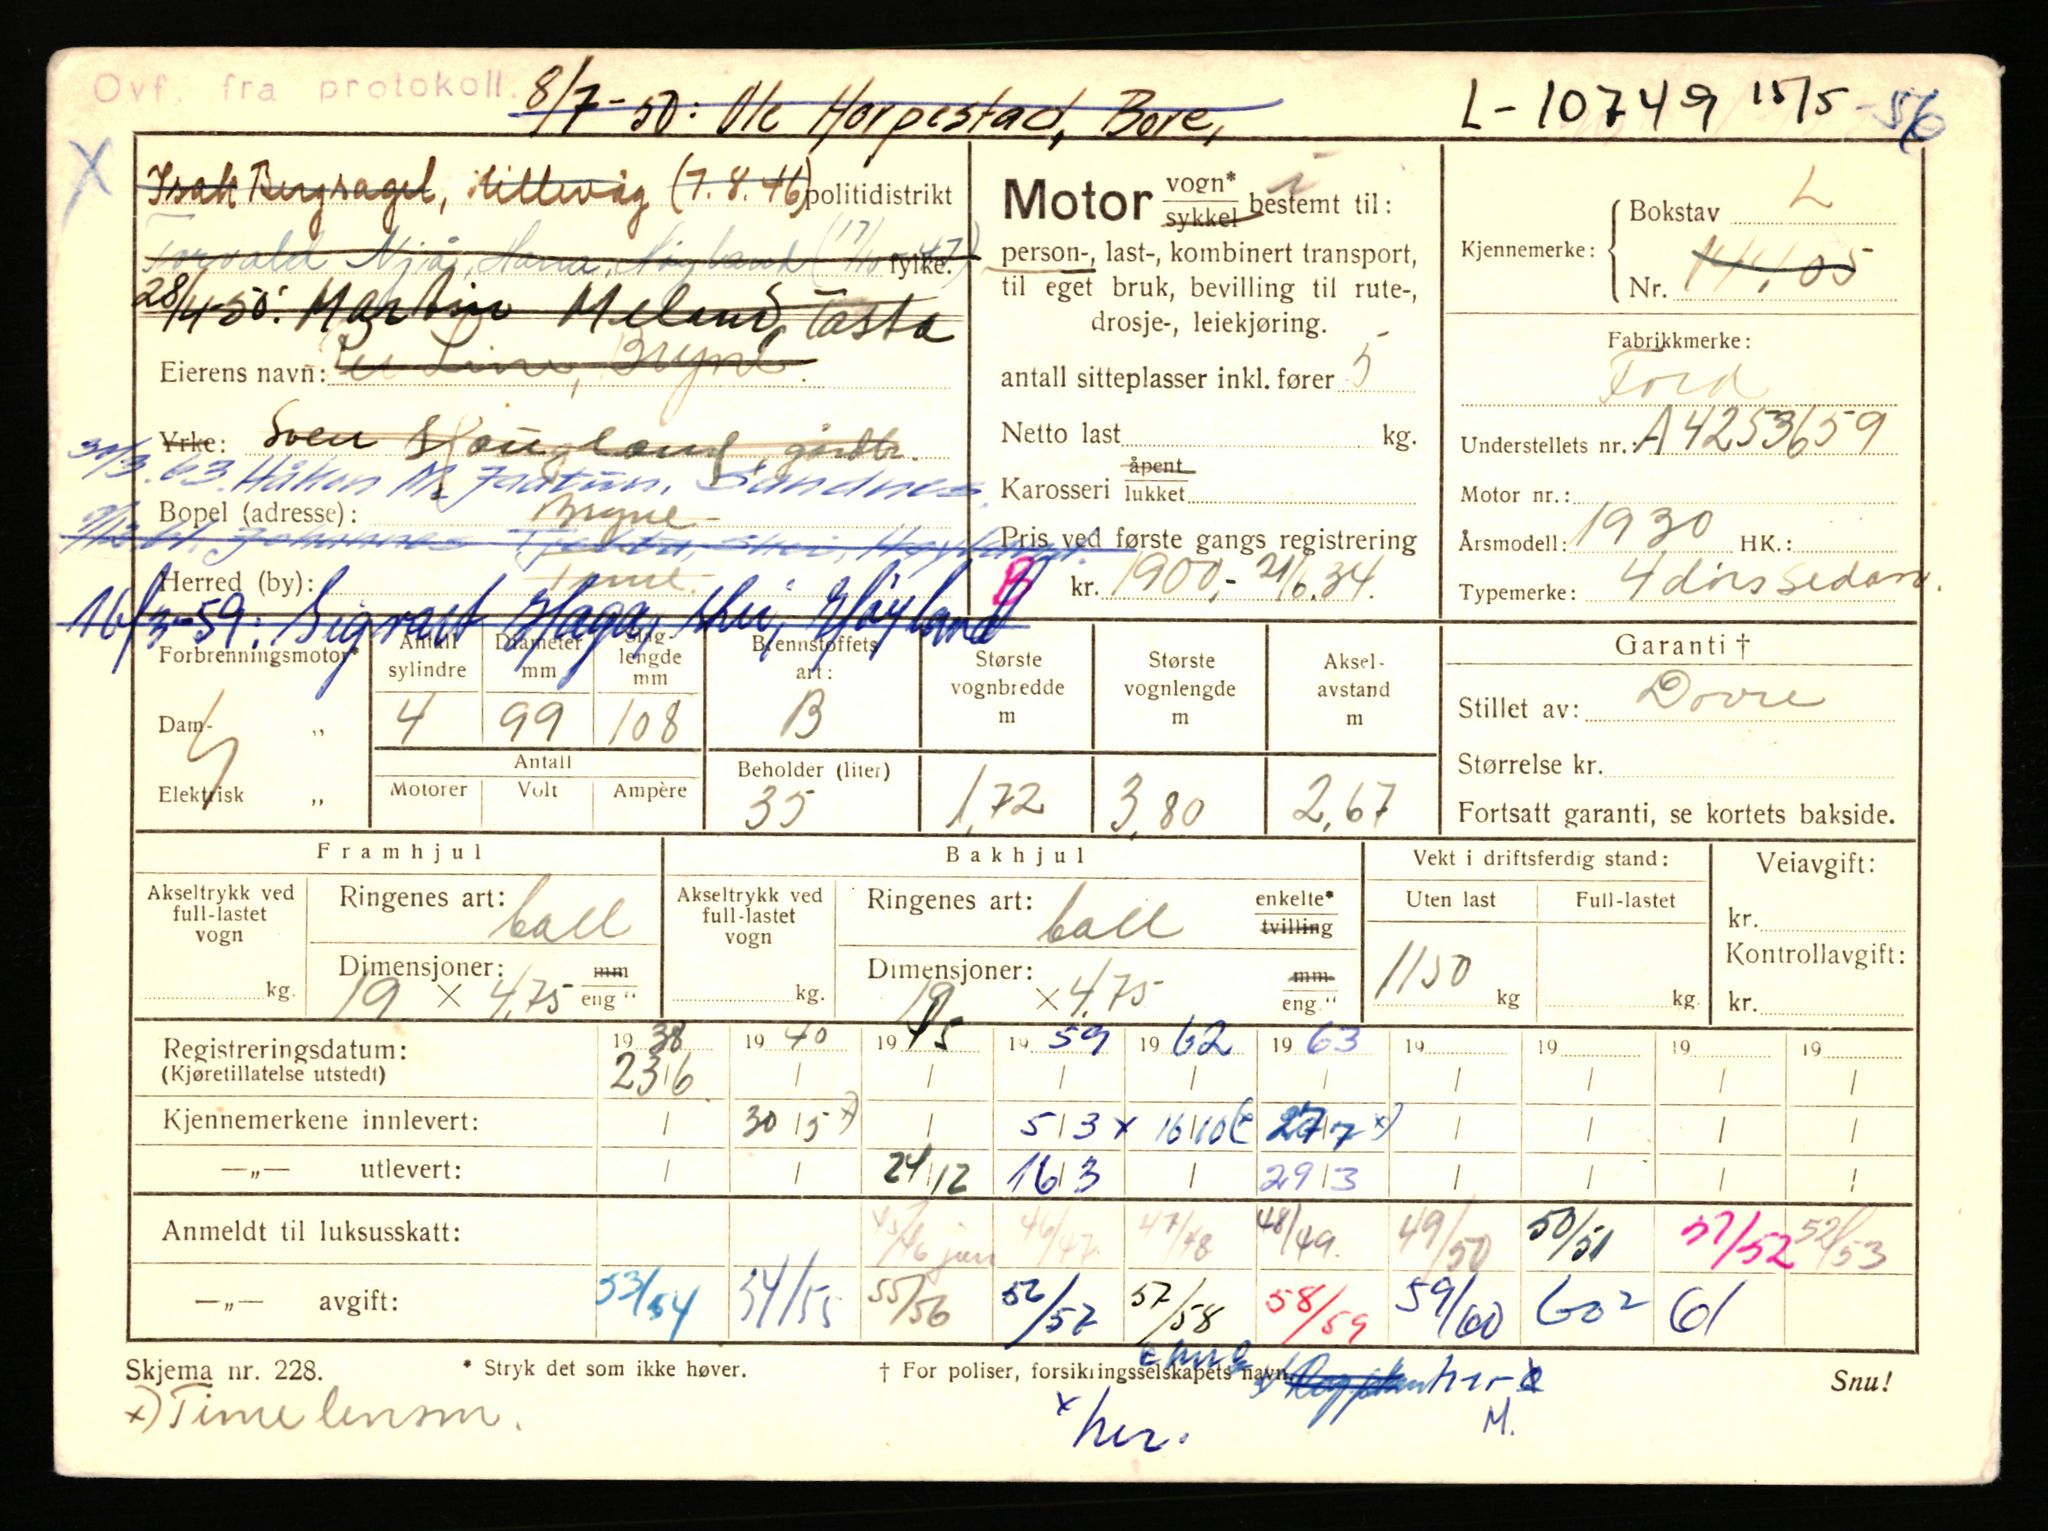 Ovf. fra protokoll.
8/7-50: Ole Horpestad, Bore,
L-10749 15/5-56
X
Isak Bergsagel, Hillevåg (7.8.46) politidistrikt
Torvald Njå, Hana, Høyland (17/10 47) fylke.
28/4-50: Martin Meland, Tasta
Eierens navn: Lima, Bryne.
Yrke: Sven Haugland, gårdbr.
30/3.63. Håkon M. Jaatun, Sandnes
Bopel (adresse): Bryne
Johannes Tjåtta, Skei, Høyland.
Herred (by): Time.
16/3-59: Sigvart Haga, Skei, Høyland
Motor vogn* sykkel bestemt til:
person-, last-, kombinert transport,
til eget bruk, bevilling til rute-,
drosje-, leiekjøring.
antall sitteplasser inkl. fører 5
Netto last kg.
Karosseri åpent lukket
Pris ved første gangs registrering
B kr. 1900,- 21/6.34.
Kjennemerke: Bokstav L
Nr. 14,05
Fabrikkmerke:
Ford
Understellets nr.: A4253659
Motor nr.:
Årsmodell: 1930 HK.:
Typemerke: 4 dørs Sedan.
Forbrenningsmotor*
Dam- „
Elektrisk „
Antall sylindre
Diameter mm
Slag-lengde mm
Brennstoffets art:
Største vognbredde m
Største vognlengde m
Aksel-avstand m
4 99 108 B
Antall
Motorer Volt Ampère
Beholder (liter)
35 1,72 3,80 2,67
Garanti †
Stillet av: Dovre
Størrelse kr.
Fortsatt garanti, se kortets bakside.
Framhjul
Akseltrykk ved full-lastet vogn
kg.
Ringenes art: ball
Dimensjoner: mm
19 × 4,75 eng "
Bakhjul
Akseltrykk ved full-lastet vogn
kg.
Ringenes art: ball enkelte* tvilling
Dimensjoner: mm
19 × 4,75 eng."
Vekt i driftsferdig stand:
Uten last Full-lastet
1150 kg kg.
Veiavgift:
kr.
Kontrollavgift:
kr.
Registreringsdatum: 19 38 19 40 19 45 19 59 19 62 19 63 19 19 19 19
(Kjøretillatelse utstedt) 23/6 / / / / / / / / /
Kjennemerkene innlevert: / 30/5 x) / 5/3 x 16/10 27/7 x) / / / /
—„— utlevert: / / 24/12 16/3 / 29/3 / / / /
Anmeldt til luksusskatt: 45/46 jan 46/47 47/48 48/49. 49/50 50/51 51/52 52/53
—„— avgift: 53/54 54/55 55/56 56/57 57/58 58/59 59/60 60 2 61
Skjema nr. 228. * Stryk det som ikke høver. † For poliser, forsikringsselskapets navn. Snu!
x) Time lensm.
x her.
M.